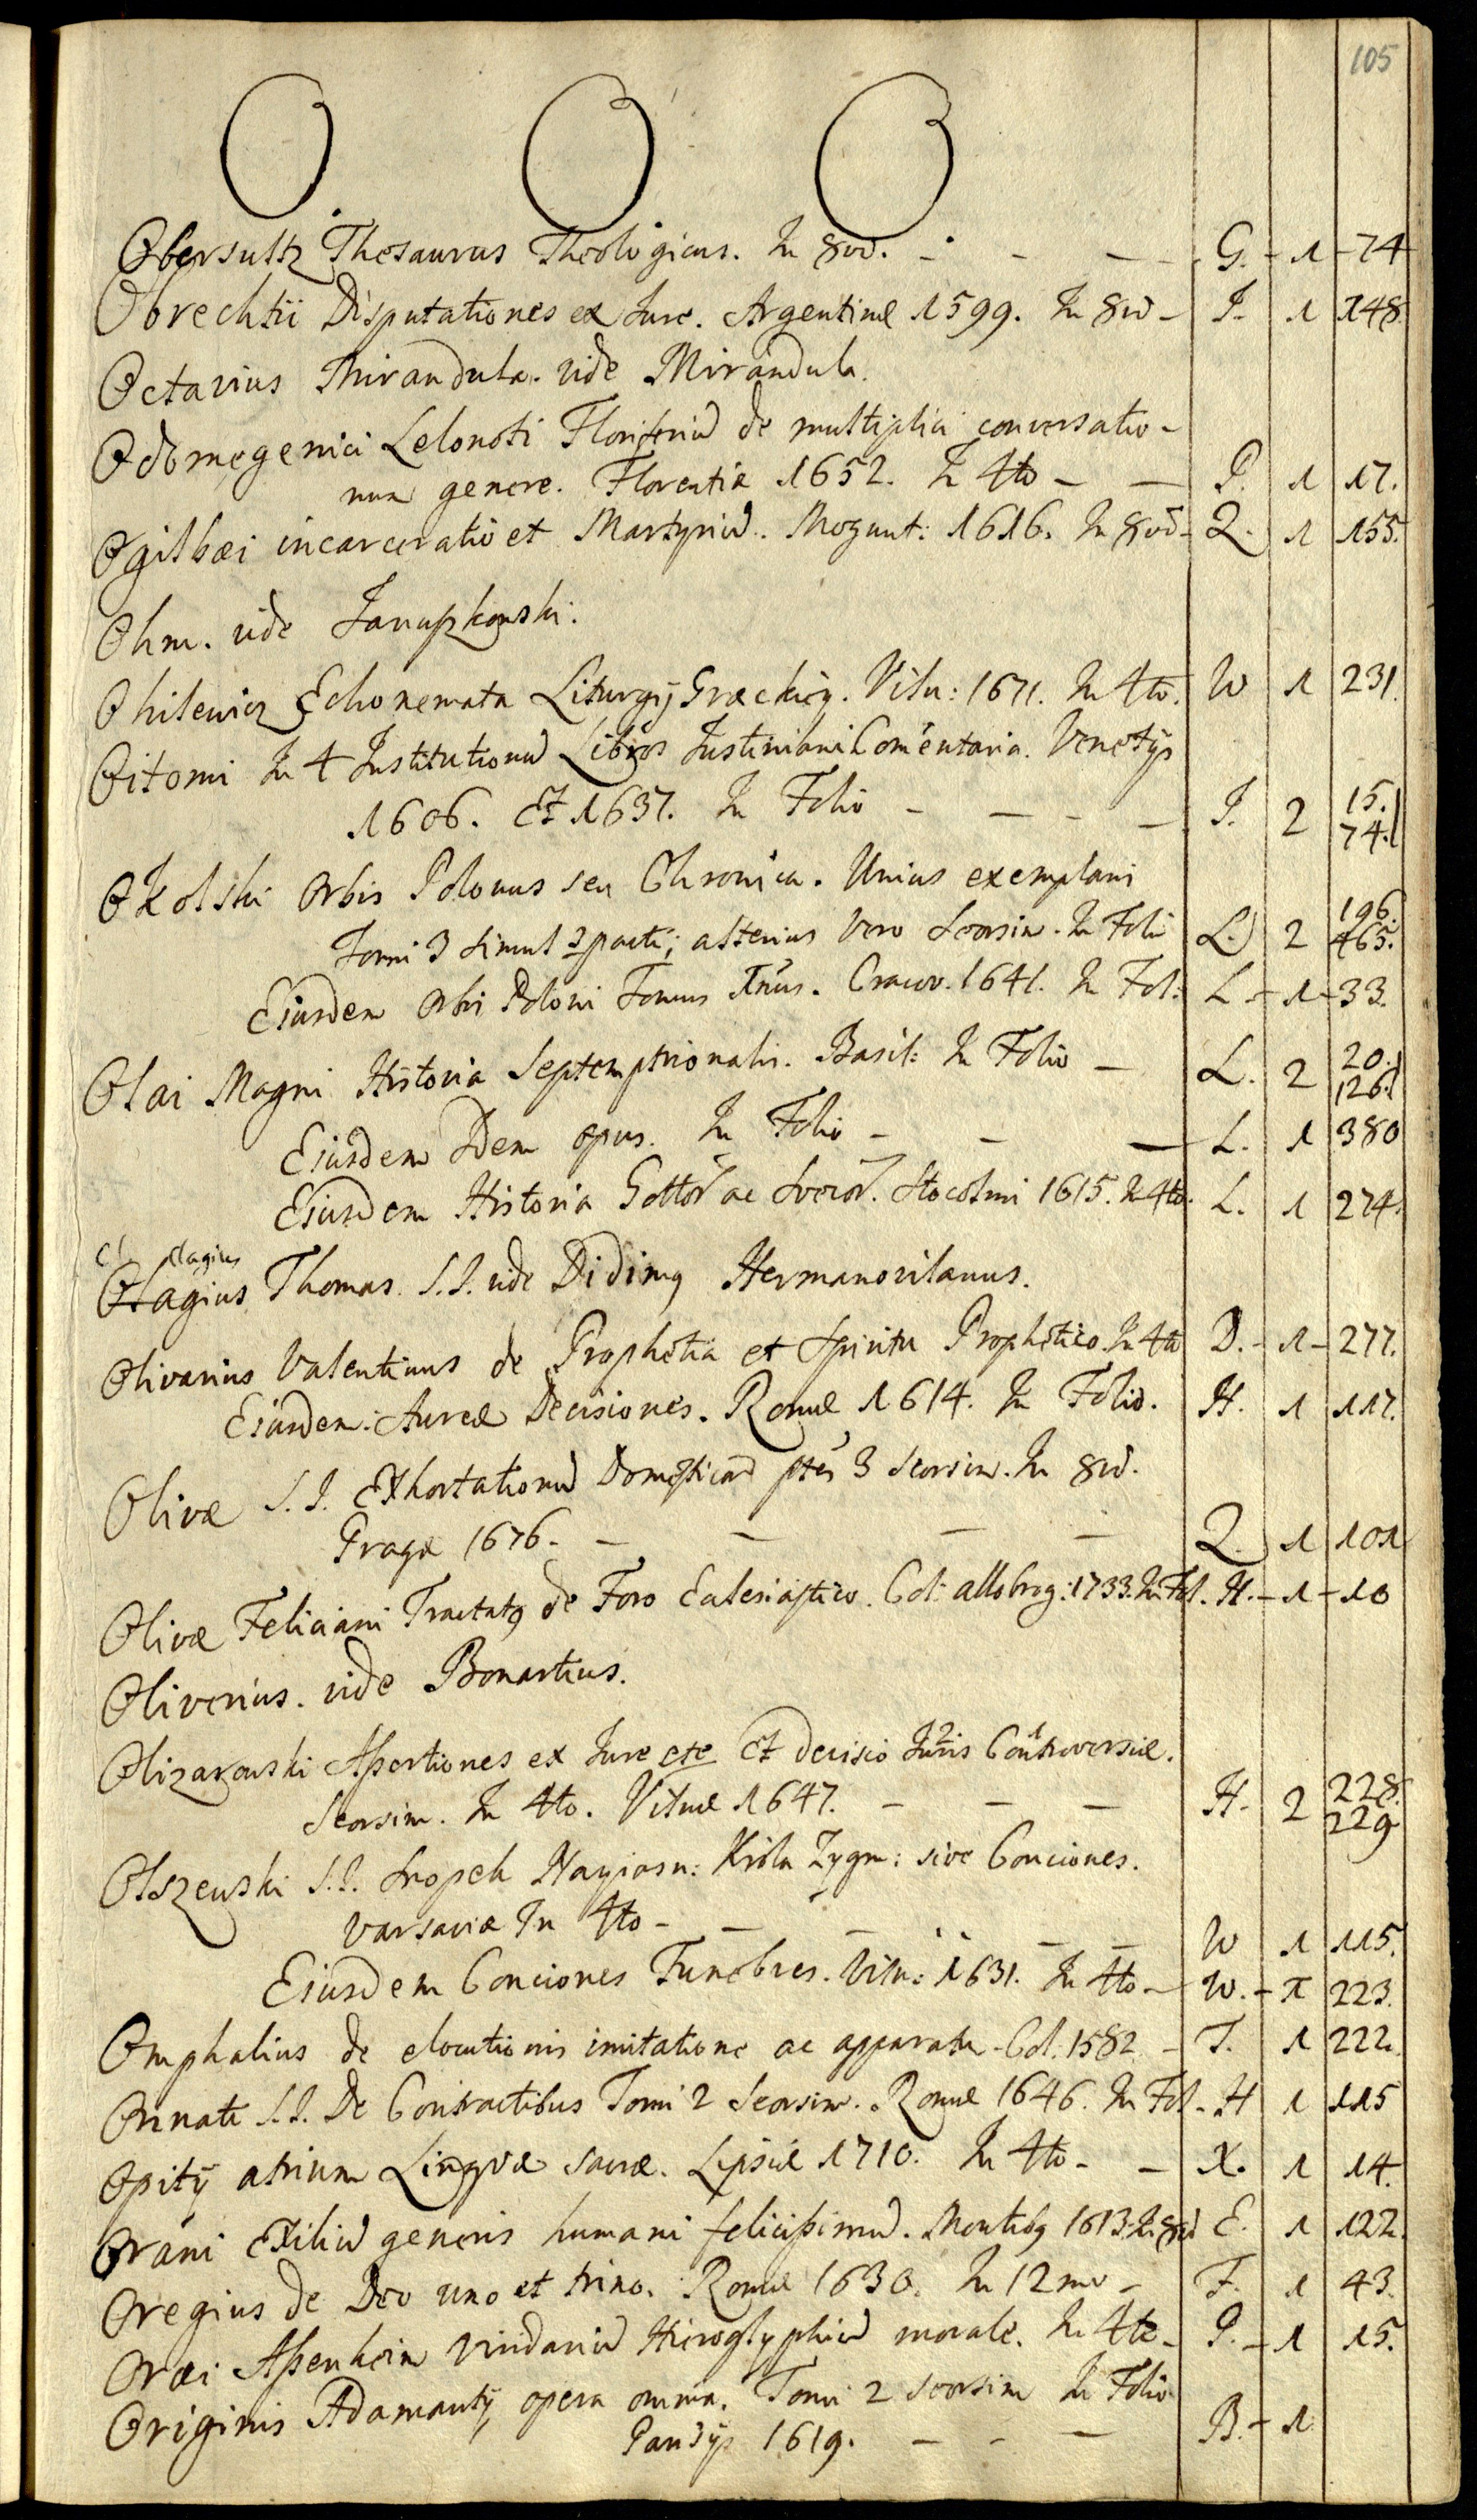 105
O. O. O
Obersultz Thesaurus Theologicus. In 8vo. - - - G. - 1 - 74
Obrechtii Disputationes ex Jure. Argentinæ 1599. In 8vo - I. 1 148.
Octavius Mirandula. vide Mirandula.
Odomegenici Lelonoti de multiplici conversatio-
num genere. Florentiæ 1652. In 4to - - P. 1 17.
Ogilbæi incarceratio et Martyriũ. Mogunt: 1616. In 8vo - Q. 1 155.
Ohm. vide Januszkowski.
Ohilewicz Echonemata Liturgij Græckiey. Viln: 1671. In 4to. W 1 231.
Oitomi In 4 Institutionũ Libros Justiniani Com̃entaria. Venetijs
1606. Et 1637. In Folio - - - - I. 2 15. 74.
Okolski Orbis Polonus seu Chronica. Unius exemplaris
Tomi 3 simul ; alterius vero seorsim. In Folio L. 2 196. 465.
Eiusdem Orbis Poloni Tomus . Cracov. 1641. In Fol: L - 1 - 33.
Olai Magni Historia Septemptrionalis. Basil: In Folio - L. 2 20. 126.
Eiusdem Idem opus. In Folio - - - L. 1 380
Eiusdem Historia Gottor̃ ac Svecor̃. Stocolmi 1615. In 4to. L. 1 274.
Elagius
Olagius Thomas. S.J. vide Didimq Hermanovilanus.
Olivarius Valentinus de Prophetia et Spiritu Prophetico. In 4to D. - 1 - 277.
Eiusdem. Aureæ Decisiones. Romæ 1614. In Folio. H. 1 117.
Olivæ S.J. Exhortationũ Domesticarũ ptes 3 seorsim. In 8vo.
Pragæ 1676. - - - - Q. 1 101
Olivæ Feliciani Tractatq de Foro Eclesiastico. Col: allobrog: 1733. In Fol. H. - 1 - 10
Oliverius. vide Bonartius.
Olizarowski Assertiones ex Jure etc Et decisio Juris Controversiæ.
Seorsim. In 4to. Vilnæ 1647. - - - H. 2 228. 229
Olszewski S.J. Snopek Nayiasn: Krola Zygm: sive Conciones.
Varsaviæ In 4to - - - - - W 1 115.
Eiusdem Conciones Funebres. Viln: 1631. In 4to - W. - 1 223.
Omphalius de elocutionis imitatione ac apparatu. Col: 1582 - T. 1 222.
Onnate S.J. De Contractibus Tomi 2 seorsim. Romæ 1646. In Fol - H 1 115
Opitij atrium Lingvæ sacræ. Lipsiæ 1710. In 4to - - X. 1 14.
Orani Exiliũ generis humani felicissimũ. Montibq 1613. In 8vo E. 1 122.
Oregius de Deo uno et trino. Romæ 1630. In 12mo - F. 1 43.
Oræi Assenheim Viridariũ Hieroglyphicũ morale. In 4to - P. - 1 15.
Originis Adamantij opera omnia. Tomi 2 seorsim In Folio
Parisijs 1619. - - - B. - 1